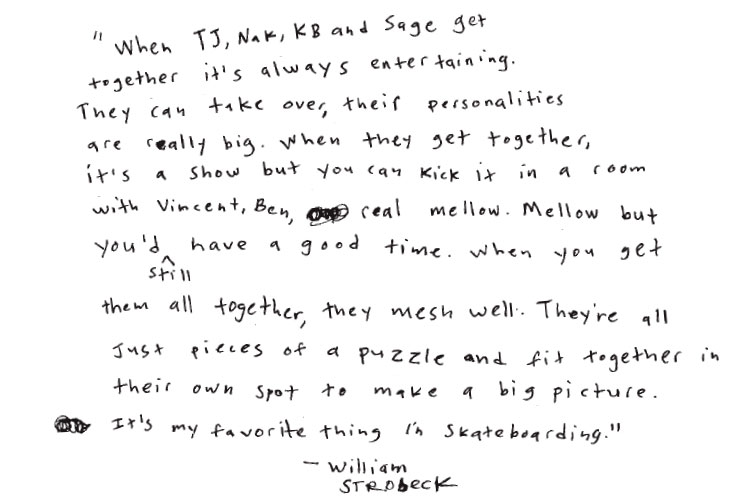 "When TJ, Nak, KB and Sage get
together it's always entertaining.
They can take over, their personalities
are really big. When they get together,
it's a show but you can kick it in a room
with Vincent, Ben, real mellow. Mellow but
you'd ^ have a good time. When you get
still
them all together, they mesh well. They're all
just pieces of a puzzle and fit together in
their own spot to make a big picture.
It's my favorite thing in skateboarding."
– William
STROBECK